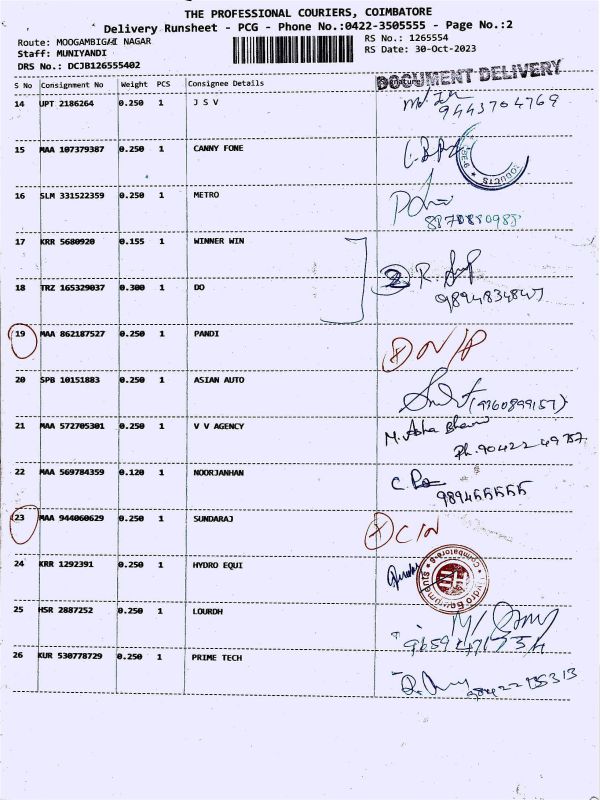 THE PROFESSIONAL COURIERS, COIMBATORE
Delivery Runsheet - PCG - Phone No.:0422-3505555 - Page No.:2
Route: MOOGAMBIGAI NAGAR
Staff: MUNIYANDI
DRS No.: DCJB126555402
RS No.: 1265554
RS Date: 30-Oct-2023
DOCUMENT DELIVERY
S No Consignment No Weight PCS Consignee Details Signature
14 UPT 2186264 0.250 1 J S V
9443704769
15 MAA 107379387 0.250 1 CANNY FONE
16 SLM 331522359 0.250 1 METRO
8870880985
17 KRR 5680920 0.155 1 WINNER WIN
18 TRZ 165329037 0.300 1 DO
2 R.
9894834847
19 MAA 862187527 0.250 1 PANDI
20 SPB 10151883 0.250 1 ASIAN AUTO
(9360899157)
21 MAA 572705301 0.250 1 V V AGENCY
M. Asha
Ph. 90422 49787
22 MAA 569784359 0.120 1 NOORJANHAN
C.
989455555
23 MAA 944060629 0.250 1 SUNDARAJ
24 KRR 1292391 0.250 1 HYDRO EQUI
Hydro Equipments Coimbatore-6
25 HSR 2887252 0.250 1 LOURDH
26 KUR 530778729 0.250 1 PRIME TECH